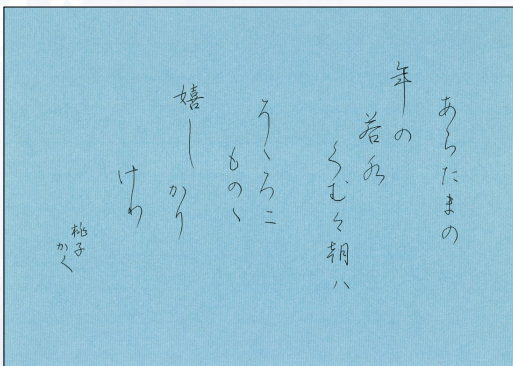 あらたまの
年の
若水
くむ今朝ハ
そゝろニ
ものゝ
嬉し
かり
けり
桃子
かく